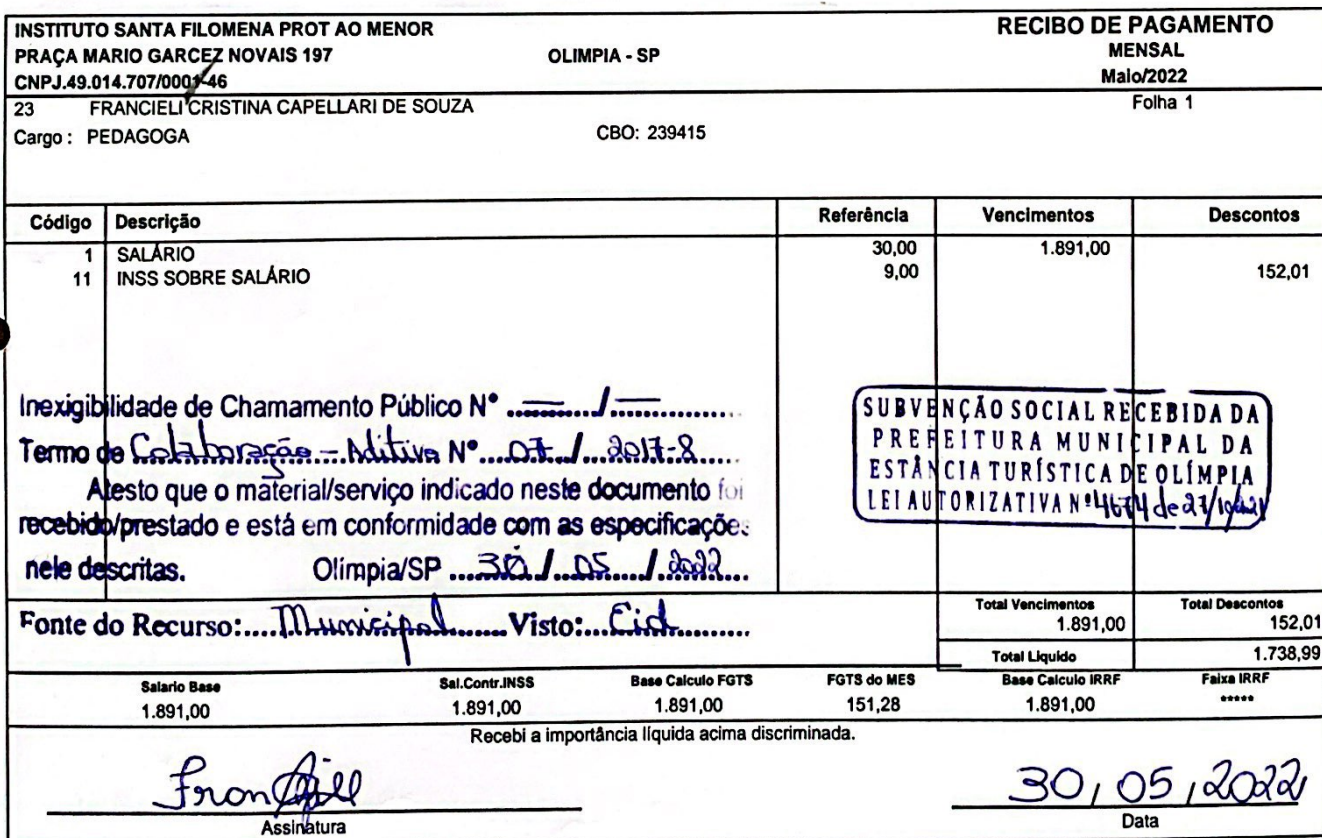 INSTITUTO SANTA FILOMENA PROT AO MENOR
RECIBO DE PAGAMENTO
PRAÇA MARIO GARCEZ NOVAIS 197 OLIMPIA - SP MENSAL
CNPJ.49.014.707/0001-46 Maio/2022
23 FRANCIELI CRISTINA CAPELLARI DE SOUZA Folha 1
Cargo : PEDAGOGA CBO: 239415
Código Descrição Referência Vencimentos Descontos
1 SALÁRIO 30,00 1.891,00
11 INSS SOBRE SALÁRIO 9,00 152,01
Inexigibilidade de Chamamento Público Nº ..... — / — .....
Termo de Colaboração - Aditivo Nº 07 / 2017-8
Atesto que o material/serviço indicado neste documento foi
recebido/prestado e está em conformidade com as especificações
nele descritas. Olímpia/SP 30 / 05 / 2022
SUBVENÇÃO SOCIAL RECEBIDA DA
PREFEITURA MUNICIPAL DA
ESTÂNCIA TURÍSTICA DE OLÍMPIA
LEI AUTORIZATIVA Nº 4674 de 27/10/2021
Fonte do Recurso: Municipal Visto: Cid
Total Vencimentos Total Descontos
1.891,00 152,01
Total Liquido 1.738,99
Salario Base Sal.Contr.INSS Base Calculo FGTS FGTS do MES Base Calculo IRRF Faixa IRRF
1.891,00 1.891,00 1.891,00 151,28 1.891,00 *****
Recebi a importância líquida acima discriminada.
30 / 05 / 2022
Assinatura Data